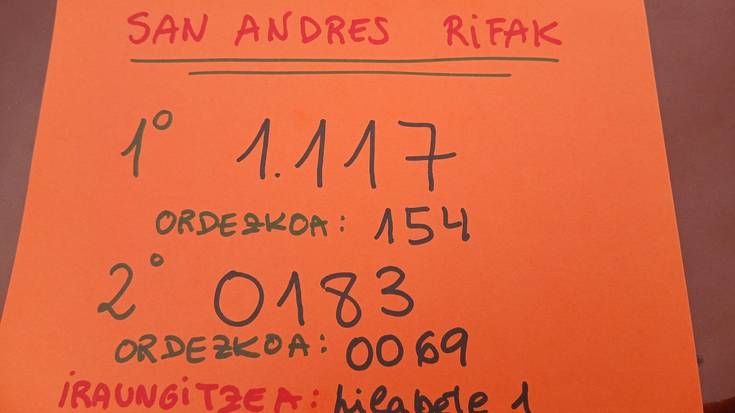 SAN ANDRES RIFAK
1º 1.117
ORDEZKOA: 154
2º 0183
ORDEZKOA: 0069
IRAUNGITZEA: hilabete 1